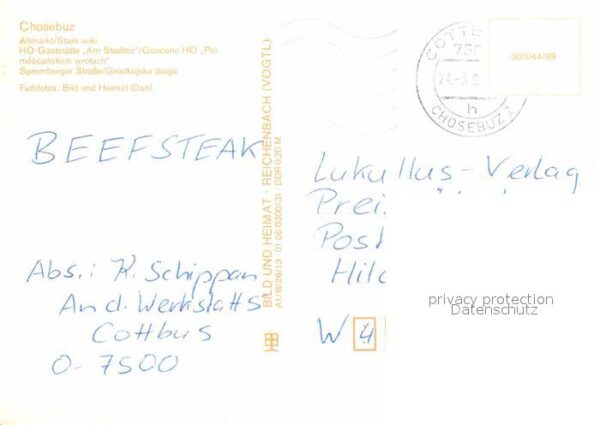 Chośebuz
Altmarkt/Stare wiki
HO-Gaststätte „Am Stadttor"/Gosćenc HO „Pśi
měšćańskich wrotach"
Spremberger Straße/Grodkojska droga
Farbfotos: Bild und Heimat (Darr)
BEEFSTEAK
Abs.: K. Schippan
An d. Werkstatts
Cottbus
O-7500
BILD UND HEIMAT · REICHENBACH (VOGTL)
DDR 0,20 M
COTTB
750
h
CHOSEBUZ 2
301044/89
Lukullus-Verlag
Prei
Post
Hild
W 4
privacy protection
Datenschutz